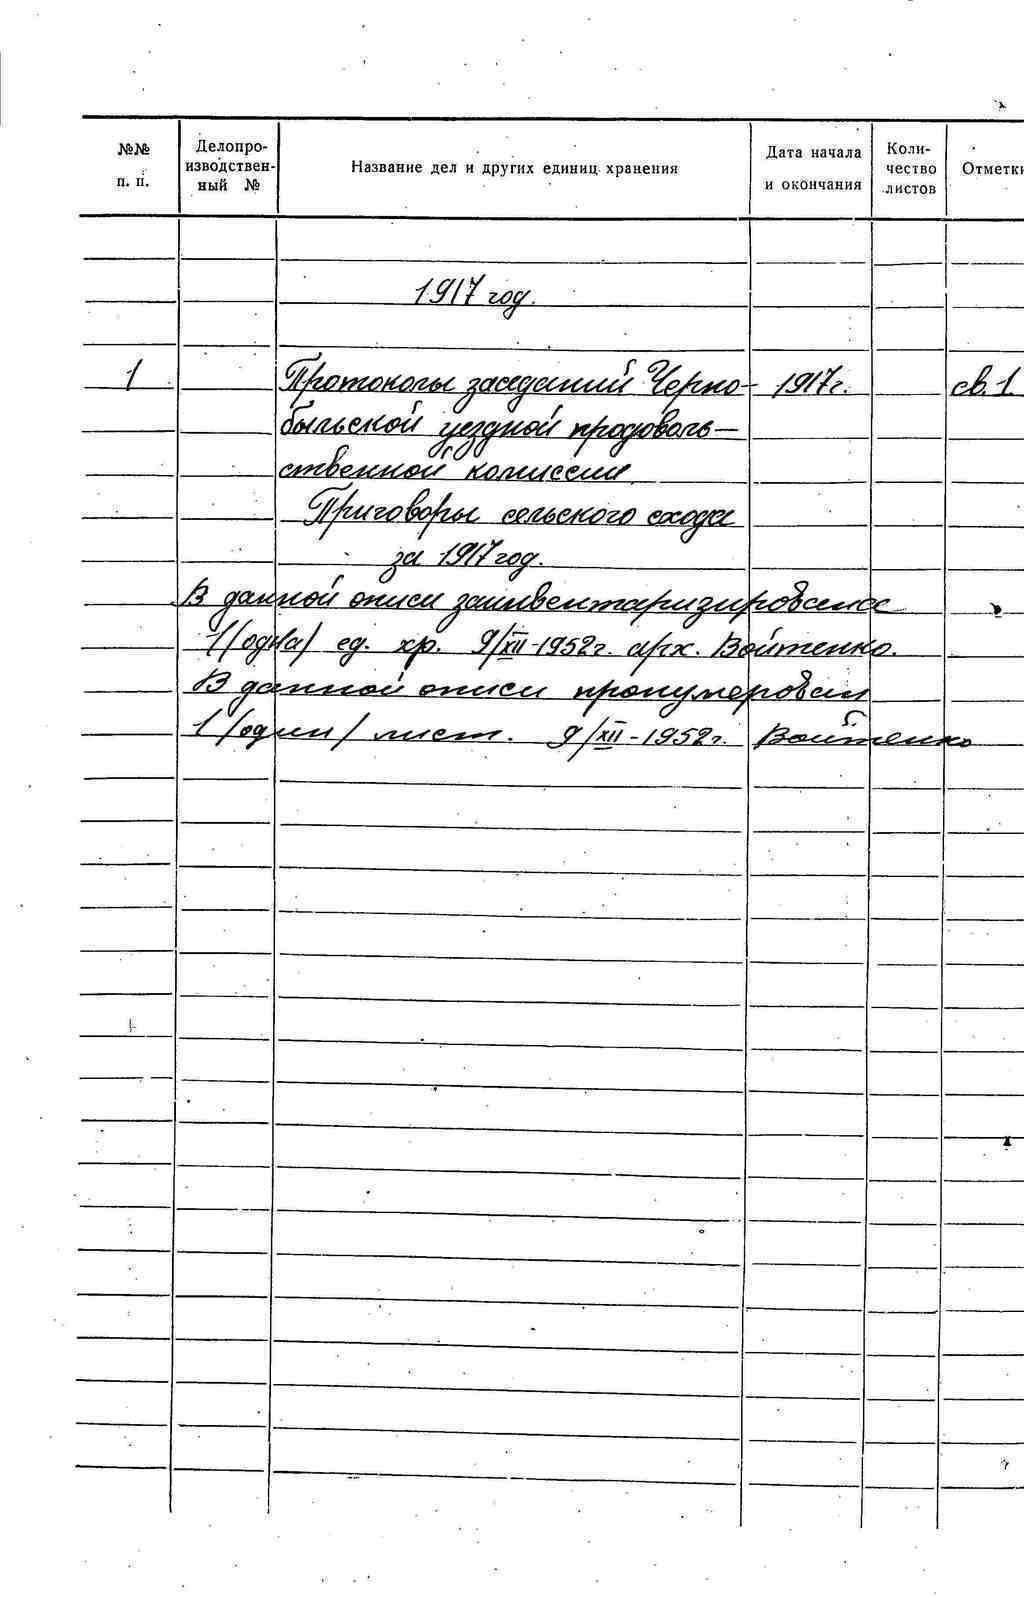 №№ п. п.
Делопро-
изводствен-
ный №
Название дел и других единиц хранения
Дата начала
и окончания
Коли-
чество
листов
Отметки
1917 год.
1 Протоколы заседаний Черно- 1917г. св. 1.
быльской уездной продоволь-
ственной комиссии.
Приговоры сельского схода
за 1917 год.
В данной описи заинвентаризирована
1 (одна) ед. хр. 9/XII-1952г. арх. Войтенко.
В данной описи пронумерован
1 (один) лист. 9/XII-1952г. Войтенко